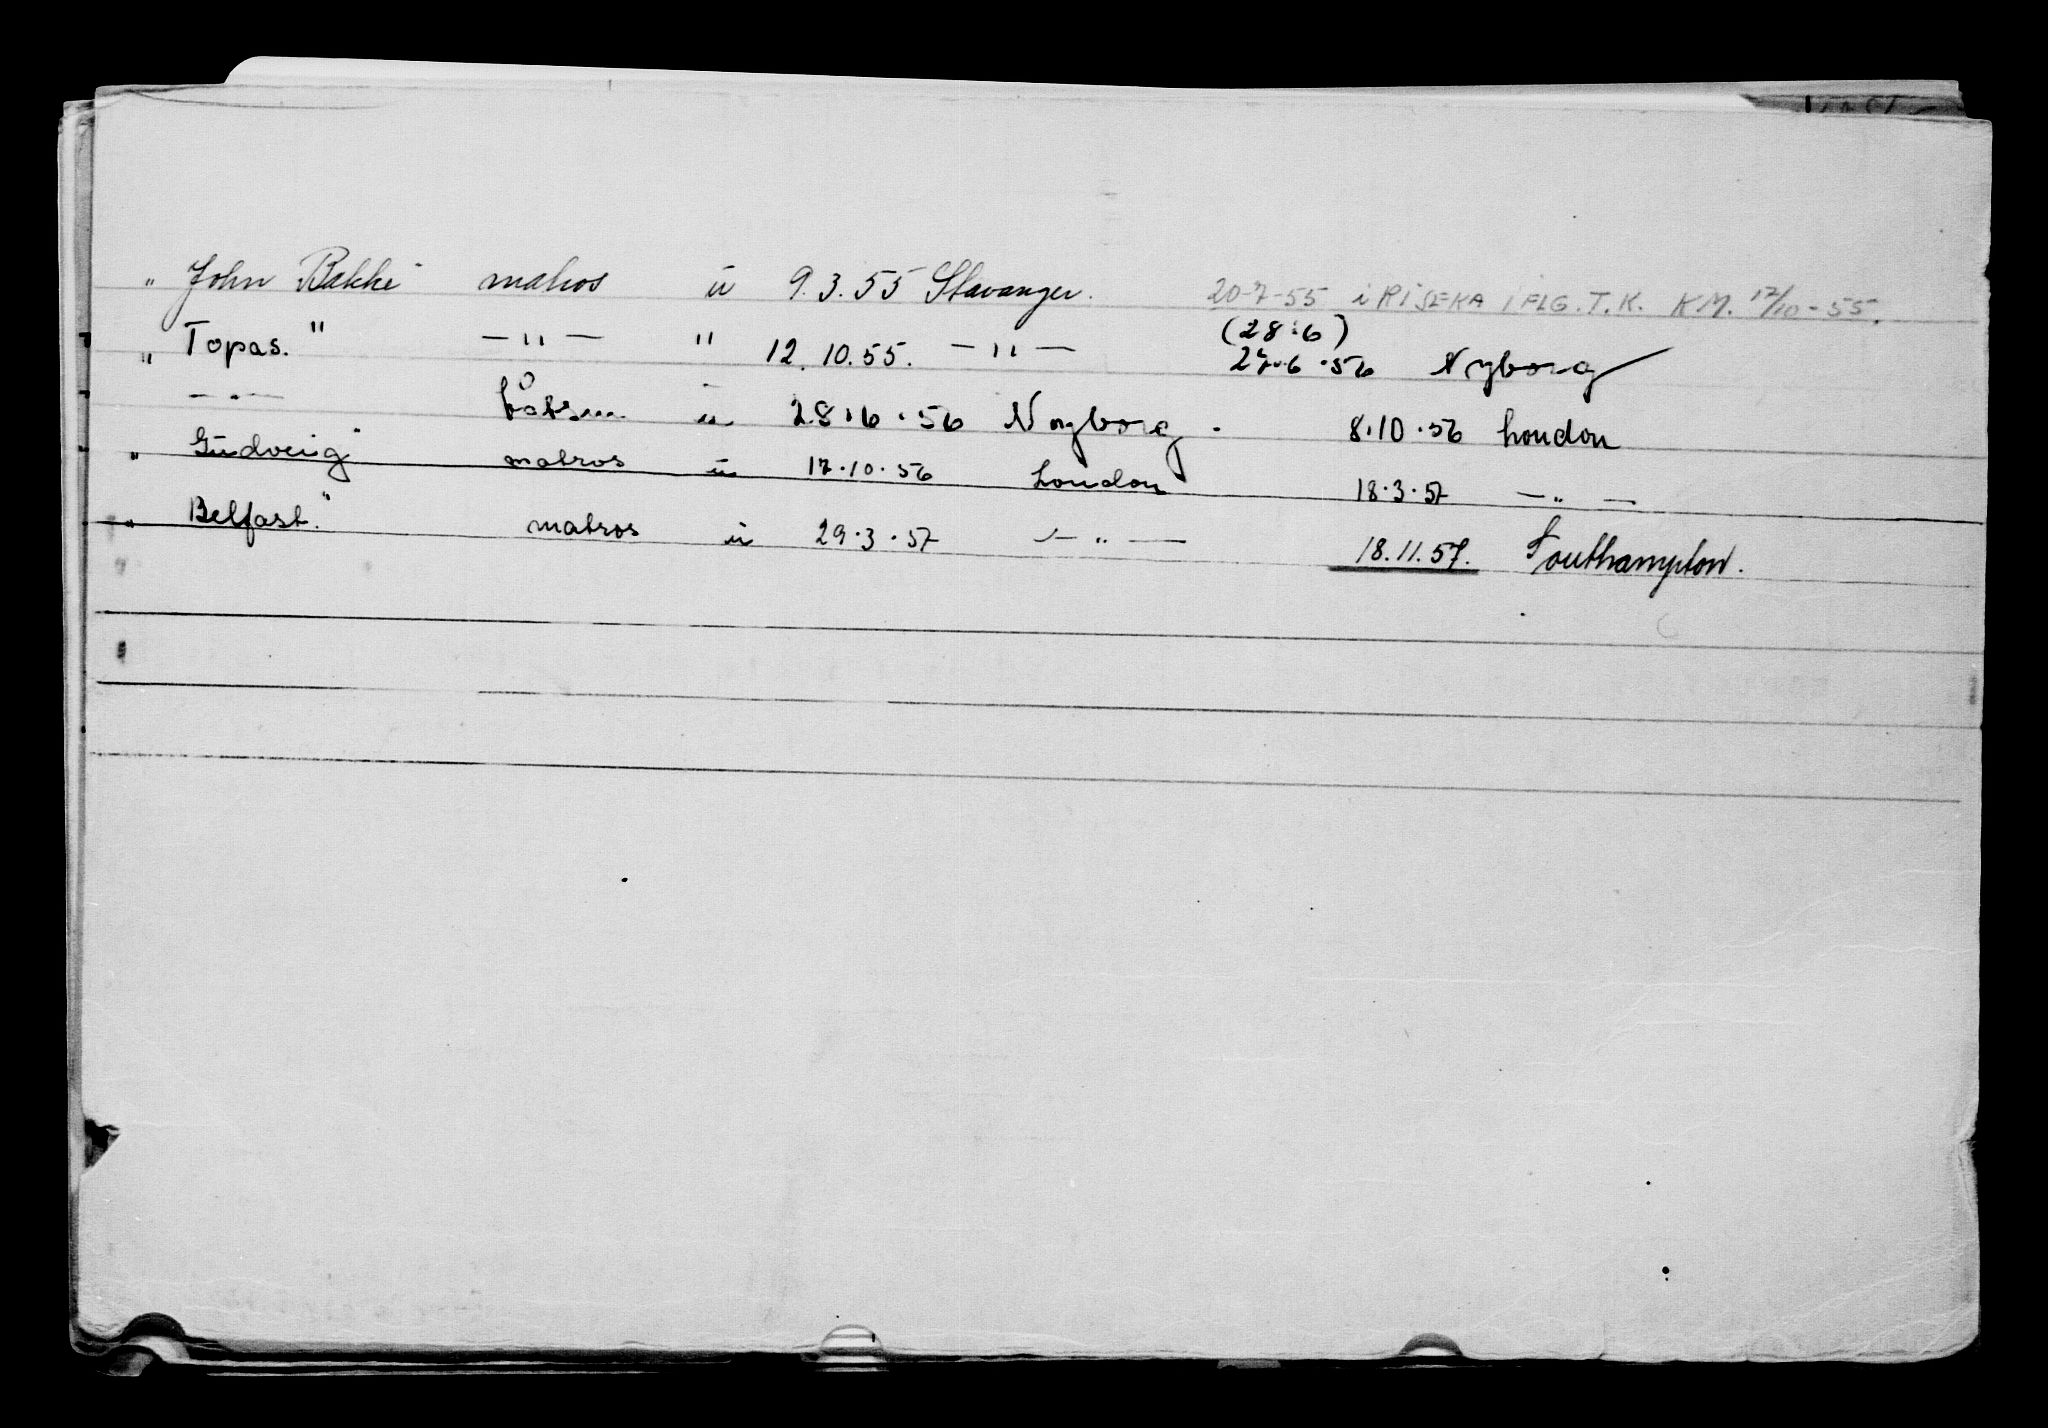 " John Bakke" matros u 9.3.55 Stavanger. 20-7-55 i RIJEKA I FLG. T.K. KM. 17/10-55.
" Topas." — " — " 12.10.55. — " — (28.6) 27.6.56 Nyborg
— " — båtsm u 28.6.56 Nyborg. 8.10.56 London
" Gudveig" matros u 17.10.56 London 18.3.57 — " —
" Belfast." matros u 29.3.57 — " — 18.11.57. Southampton.